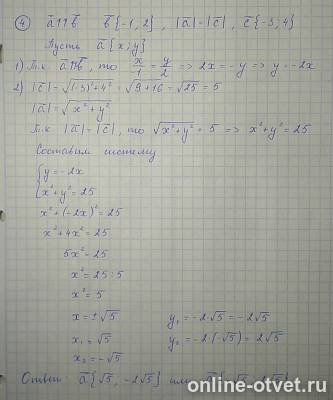 ④ a̅↑↑b̅  b̅{-1, 2}, |a̅|=|c̅|, c̅{-3, 4}
Пусть a̅{x; y}
1) Т.к. a̅↑↑b̅, то x/-1 = y/2 => 2x = -y => y = -2x
2) |c̅| = √((-3)²+4²) = √(9+16) = √25 = 5
|a̅| = √(x²+y²)
Т.к. |a̅|=|c̅|, то √(x²+y²) = 5 => x²+y² = 25
Составим систему
{ y = -2x
{ x²+y² = 25
x²+(-2x)² = 25
x²+4x² = 25
5x² = 25
x² = 25:5
x² = 5
x = ±√5  y₁ = -2·√5 = -2√5
x₁ = √5  y₂ = -2·(-√5) = 2√5
x₂ = -√5
Ответ: a̅{√5, -2√5} или a̅{-√5, 2√5}
online-otvet.ru